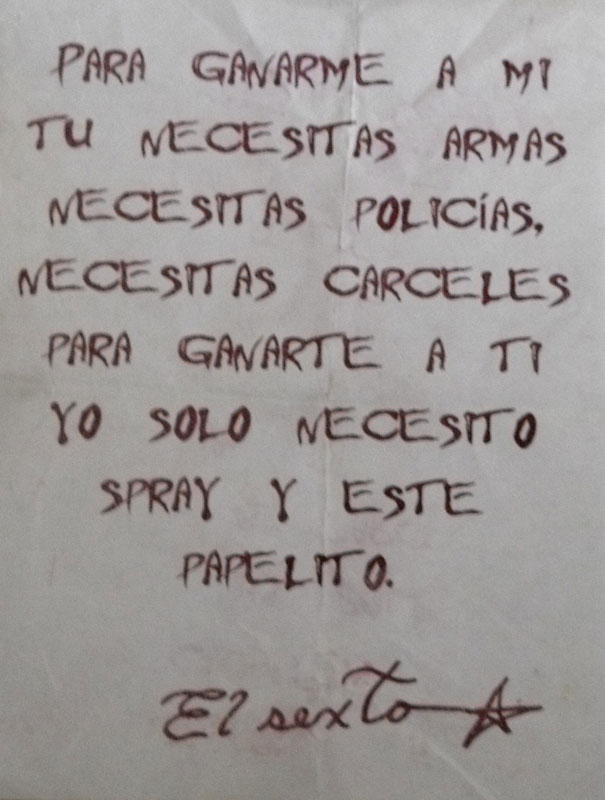 PARA GANARME A MI
TU NECESITAS ARMAS
NECESITAS POLICÍAS,
NECESITAS CARCELES
PARA GANARTE A TI
YO SOLO NECESITO
SPRAY Y ESTE
PAPELITO.
El sexto